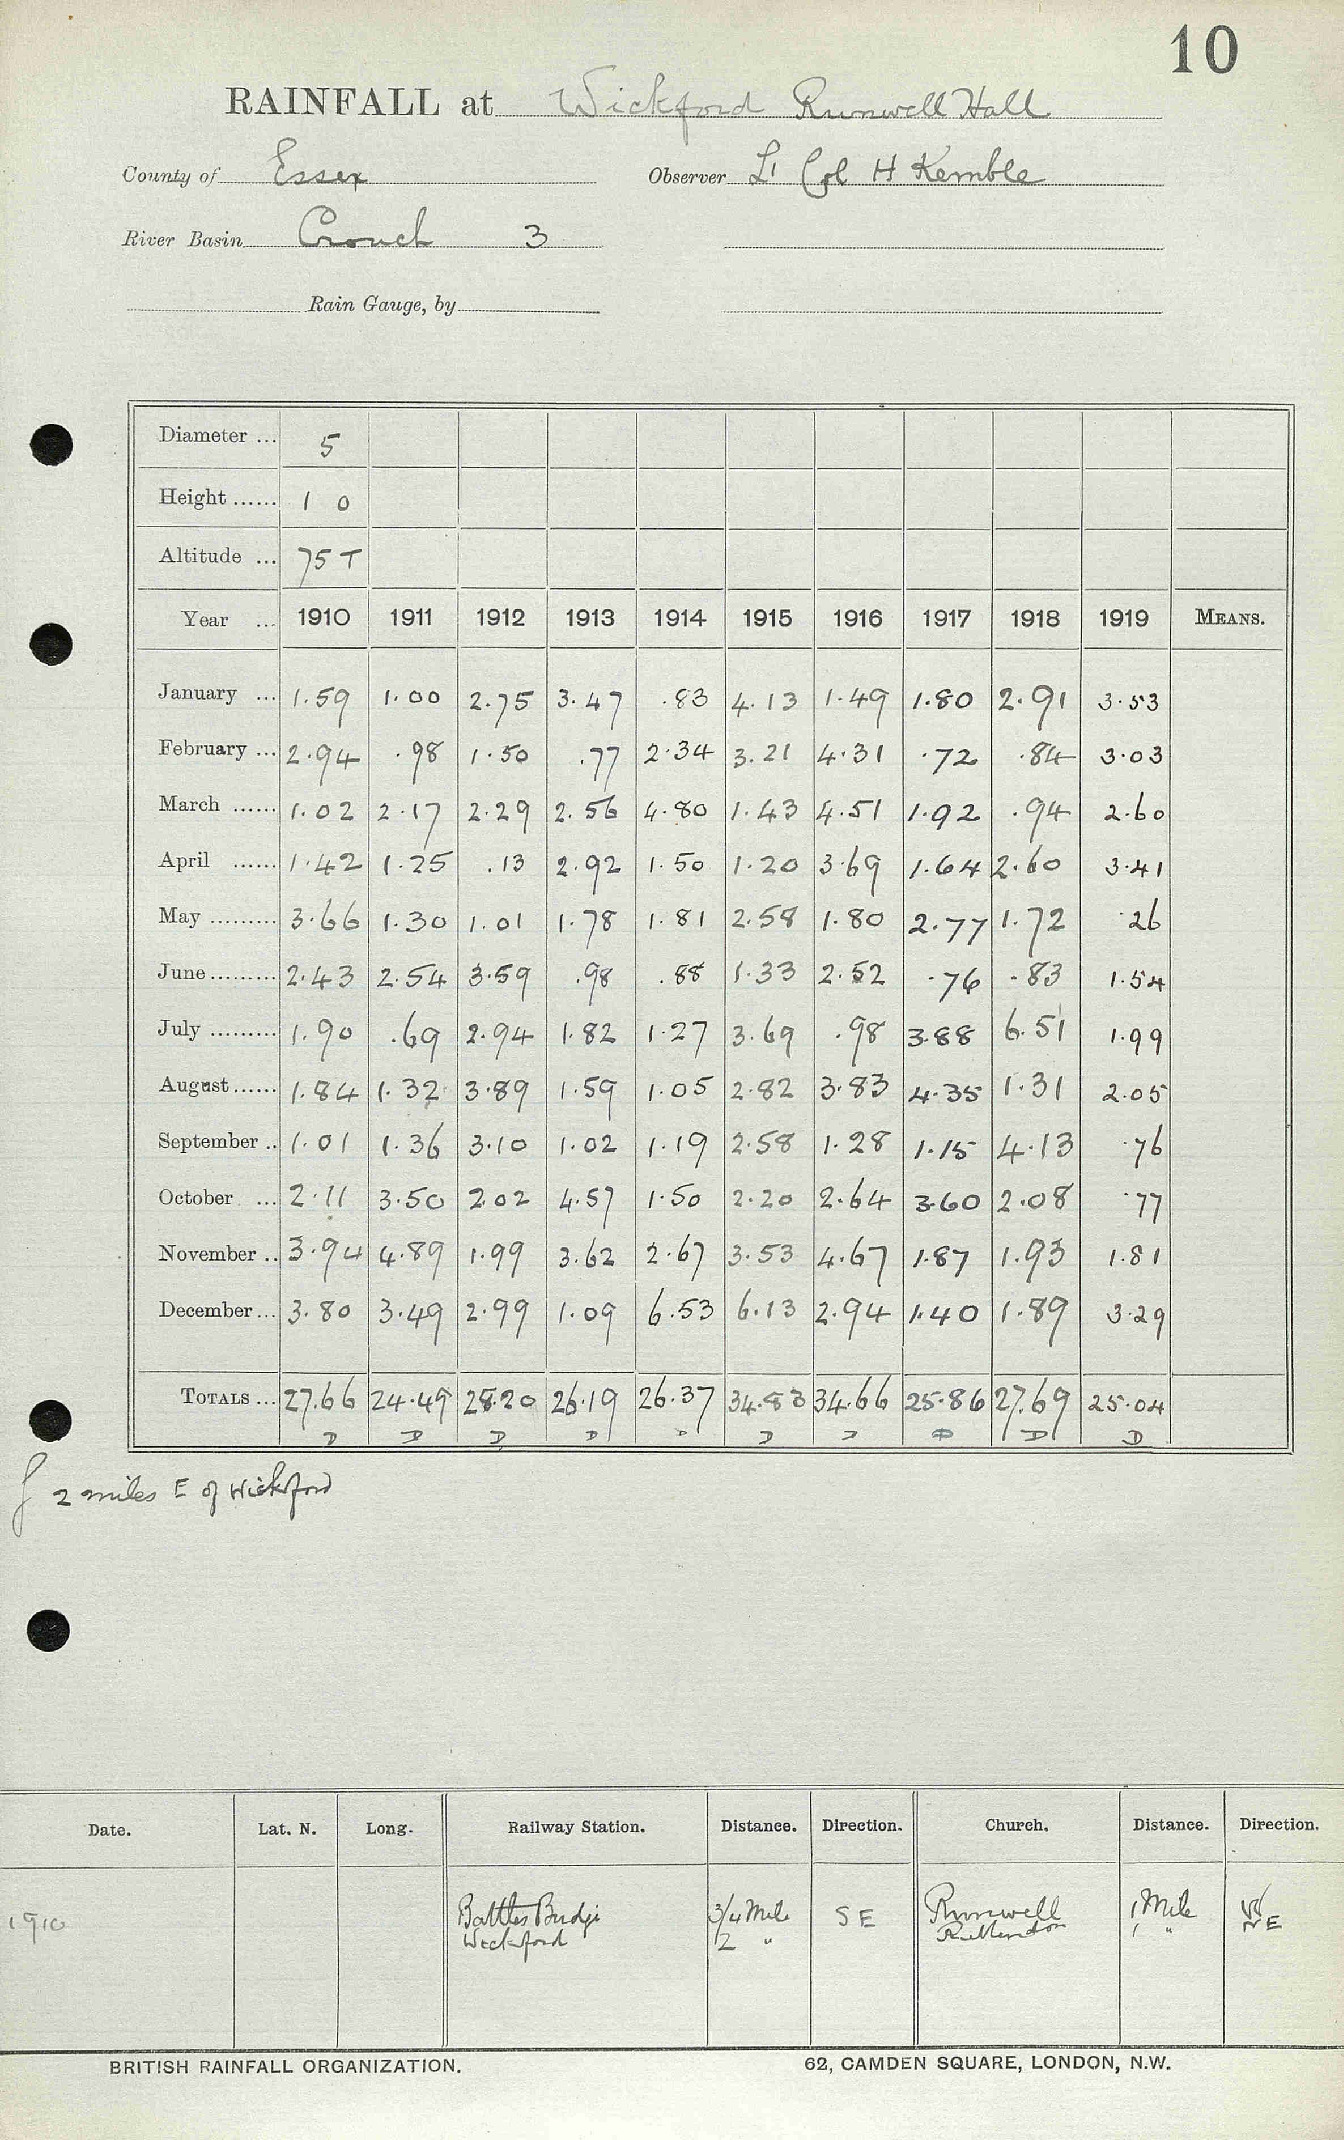 10
RAINFALL at Wickford Runwell Hall
County of Essex Observer Lt Col H Kemble
River Basin Crouch 3
Rain Gauge, by
Diameter ... 5
Height ...... 1 0
Altitude ... 75 T
Year ... 1910 1911 1912 1913 1914 1915 1916 1917 1918 1919 MEANS.
January ... 1.59 1.00 2.75 3.47 .83 4.13 1.49 1.80 2.91 3.53
February ... 2.94 .98 1.50 .77 2.34 3.21 4.31 .72 .84 3.03
March ...... 1.02 2.17 2.29 2.56 4.80 1.43 4.51 1.92 .94 2.60
April ...... 1.42 1.25 .13 2.92 1.50 1.20 3.69 1.64 2.60 3.41
May ......... 3.66 1.30 1.01 1.78 1.81 2.58 1.80 2.77 1.72 .26
June ......... 2.43 2.54 3.59 .98 .88 1.33 2.52 .76 .83 1.54
July ......... 1.90 .69 2.94 1.82 1.27 3.69 .98 3.88 6.51 1.99
August ...... 1.84 1.32 3.89 1.59 1.05 2.82 3.83 4.35 1.31 2.05
September .. 1.01 1.36 3.10 1.02 1.19 2.58 1.28 1.15 4.13 .76
October ... 2.11 3.50 2.02 4.57 1.50 2.20 2.64 3.60 2.08 .77
November .. 3.94 4.89 1.99 3.62 2.67 3.53 4.67 1.87 1.93 1.81
December ... 3.80 3.49 2.99 1.09 6.53 6.13 2.94 1.40 1.89 3.29
TOTALS ... 27.66 24.49 28.20 26.19 26.37 34.83 34.66 25.86 27.69 25.04
D D D D D D D D D D
2 miles E of Wickford
Date. Lat. N. Long. Railway Station. Distance. Direction. Church. Distance. Direction.
1910 Battles Bridge 3/4 Mile SE Runwell 1 Mile W
Wickford 2 " Rettendon 1 " NE
BRITISH RAINFALL ORGANIZATION. 62, CAMDEN SQUARE, LONDON, N.W.